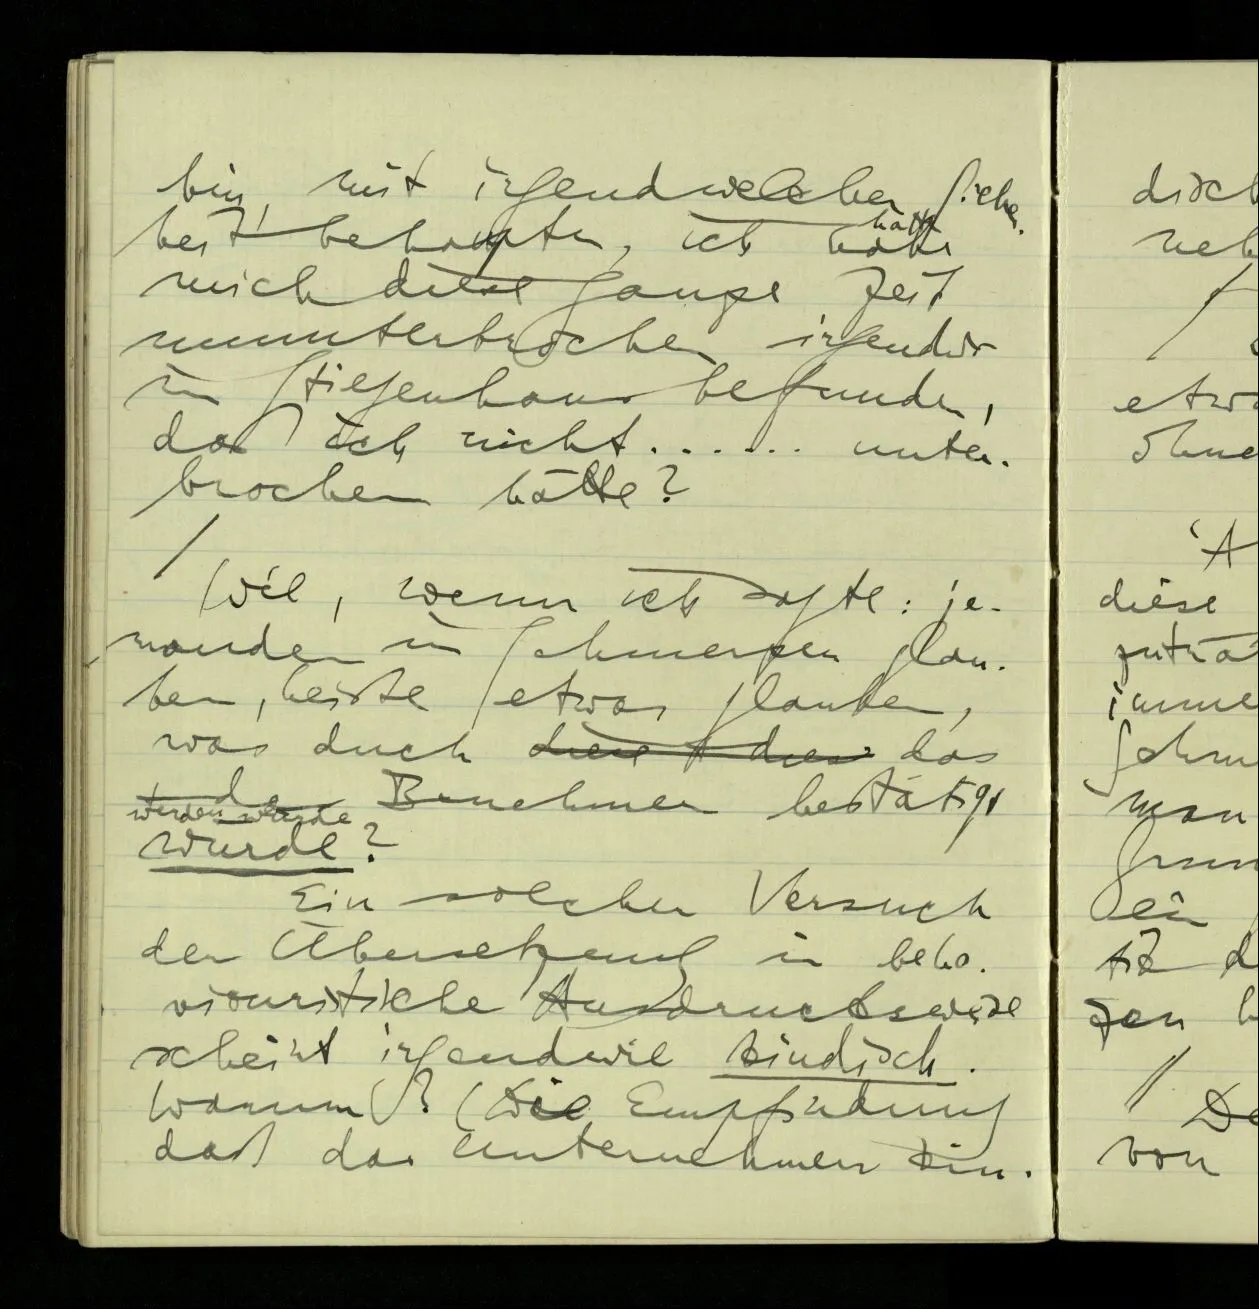 bin, mit irgendwelcher Sicher-
heit behaupten, ich habe hätte
mich diese ganze Zeit
ununterbrochen irgendwo
im Stiegenhaus befunden,
daß ich nicht ....... unter-
brochen hätte?
/
Wie, wenn ich sagte: je-
manden in Schmerzen glau-
ben, heiße etwas glauben,
was durch diese & dieses das
der Benehmen bestätigt
werden würde
wurde?
Ein solcher Versuch
der Übersetzung in beha-
viouristische Ausdrucksweise
scheint irgendwie kindisch.
Warum? (Die Empfindung
daß das Unternehmen kin-
disch
neh
/
etwa
ohne
'A
diese
zuträ
imme
Schm
man
Grun
ein
ist d
gen h
//
De
von